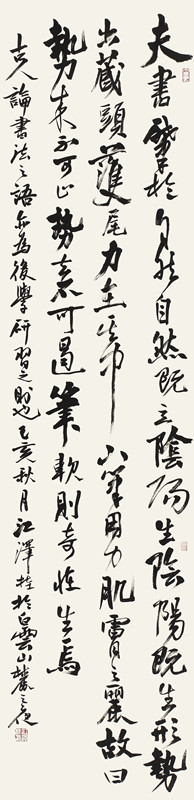 夫書肇於自然自然既立陰陽生陰陽既生形勢
出藏頭護尾力在字中下筆用力肌膚之麗故曰
勢來不可止勢去不可遏筆軟則奇怪生焉
古人論書法之語亦為後學研習之也己亥秋月江澤於白雲山麓之夜